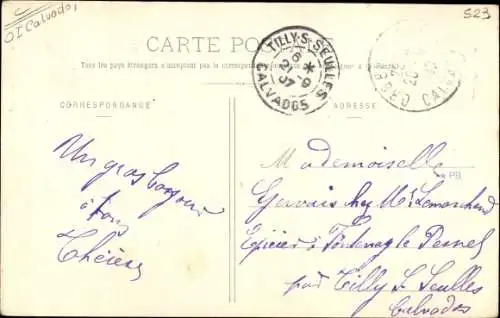 OI Calvados
523
CARTE POSTALE
Tous les pays étrangers n'acceptent pas la correspondance
TILLY-S-SEULLES
6 *
21 -9
07
CALVADOS
CALVADOS
CORRESPONDANCE
ADRESSE
Un gros bonjour
à tous
Thérèse
PB
Mademoiselle
Gervais chez Mr Lemarchand
Epicier à Fontenay le Pesnel
par Tilly S Seulles
Calvados